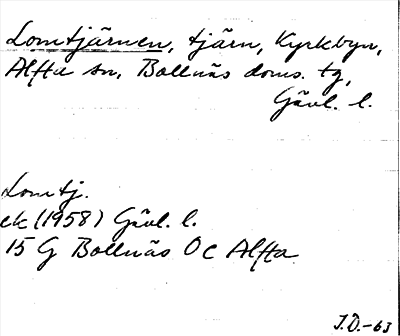 Lomtjärnen, tjärn, Kyrkbyn,
Alfta sn, Bollnäs doms. tg,
Gävl. l.
Lomtj.
ek (1958) Gävl. l.
15 G Bollnäs Öc Alfta
J.Ö.-63